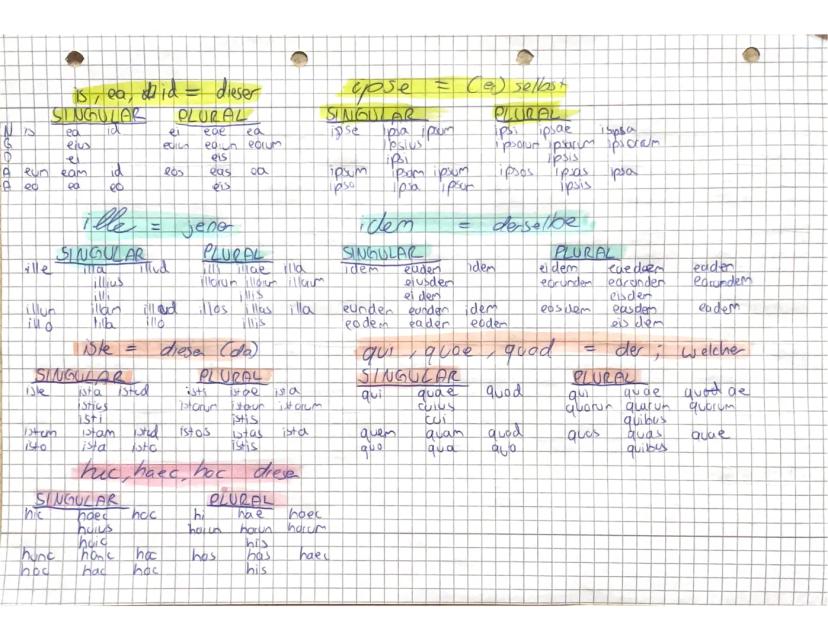 is, ea, id = dieser
SINGULAR PLURAL
N is ea id ei eae ea
G eius eorum earum eorum
D ei eis
A eum eam id eos eas ea
A eo ea eo eis
ipse = (er) selbst
SINGULAR PLURAL
ipse ipsa ipsum ipsi ipsae ipsa
ipsius ipsorum ipsarum ipsorum
ipsi ipsis
ipsum ipsam ipsum ipsos ipsas ipsa
ipso ipsa ipsis
ille = jener
SINGULAR PLURAL
ille illa illud illi illae illa
illius illorum illarum illorum
illi illis
illum illam illud illos illas illa
illo illa illo illis
idem = derselbe
SINGULAR PLURAL
idem eadem idem eidem eaedem eadem
eiusdem eorundem earundem eorundem
eidem eisdem
eundem eandem idem eosdem easdem eadem
eodem eadem eodem eisdem
iste = dieser (da)
SINGULAR PLURAL
iste ista istud isti istae ista
istius istorum istarum istorum
isti istis
istum istam istud istos istas ista
isto ista isto istis
qui, quae, quod = der; welcher
SINGULAR PLURAL
qui quae quod qui quae quae
cuius quorum quarum quorum
cui quibus
quem quam quod quos quas quae
quo qua quo quibus
hic, haec, hoc dieser
SINGULAR PLURAL
hic haec hoc hi hae haec
huius horum harum horum
huic his
hunc hanc hoc hos has haec
hoc hac hoc his